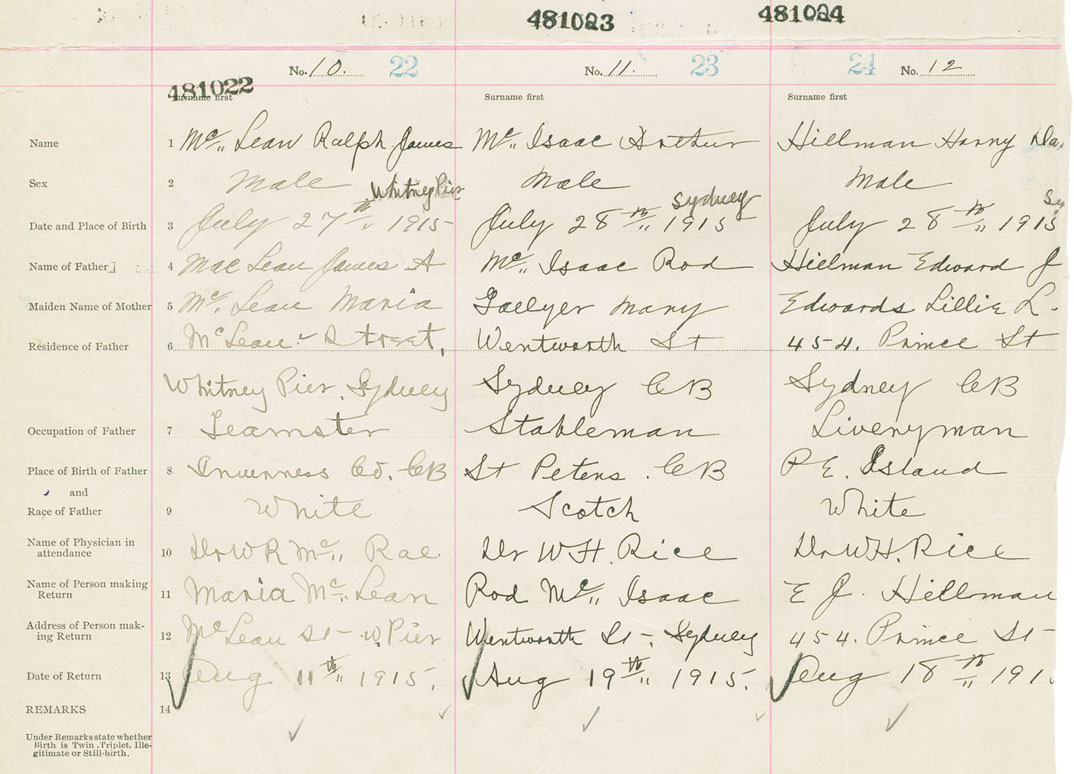 481023 481024
481022
No. 10. 22 No. 11. 23 24 No. 12
Surname first Surname first Surname first
Name 1 Mc,, Lean Ralph James Mc,, Isaac Arthur Hillman Harry
Sex 2 Male Male Male
Whitney Pier Sydney Sy
Date and Place of Birth 3 July 27th,, 1915 July 28th,, 1915 July 28th,, 1915
Name of Father 4 Mac Lean James A Mc,, Isaac Rod Hillman Edward J
Maiden Name of Mother 5 Mc,, Lean Maria Mary Edwards Lillie L.
Residence of Father 6 McLean's Street, Wentworth St 454. Prince St
Whitney Pier, Sydney Sydney CB Sydney CB
Occupation of Father 7 Teamster Stableman Liveryman
Place of Birth of Father 8 Inverness Co. CB St Peters. CB P E. Island
and
Race of Father 9 White Scotch White
Name of Physician in
attendance 10 Dr W R Mc,, Rae Dr W H. Rice Dr W H. Rice
Name of Person making
Return 11 Maria Mc,, Lean Rod Mc,, Isaac E J. Hillman
Address of Person mak-
ing Return 12 McLean St - W. Pier Wentworth St -, Sydney 454. Prince St -
Date of Return 13 Aug 11th,, 1915. Aug 19th,, 1915. Aug 18th,, 191
REMARKS 14
Under Remarks state whether
Birth is Twin, Triplet, Ille-
gitimate or Still-birth.